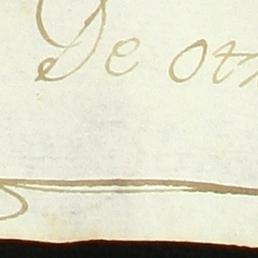 De ot